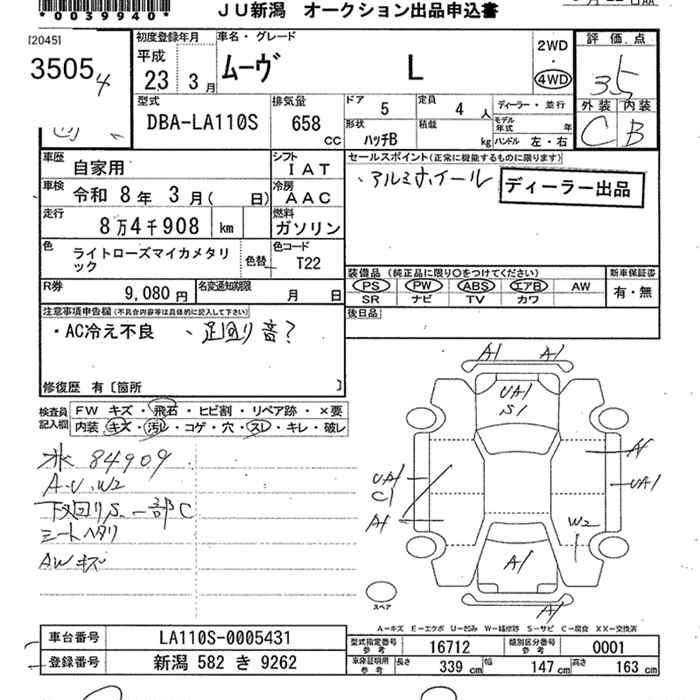 *0039940*
JU新潟 オークション出品申込書
[2045]
35054
初度登録年月
平成
23 3月
車名・グレード
ムーヴ L
2WD
・
4WD
評価点
3.5
外装 内装
C B
型式
DBA-LA110S
排気量
658 cc
ドア 5
定員 4 人
形状 ハッチB
積載 kg
ディーラー・並行
モデル年式 年
ハンドル 左・右
車歴 自家用
シフト IAT
車検 令和 8年 3月( 日)
冷房 AAC
走行 8万4千908 km
燃料 ガソリン
色 ライトローズマイカメタリック
色替
色コード T22
R券 9,080円
名変通知期限 月 日
セールスポイント(正常に機能するものに限ります)
、アルミホイール
ディーラー出品
装備品(純正品に限り○をつけてください)
PS PW ABS エアB AW
SR ナビ TV カワ
新車保証書
有・無
後日品
注意事項申告欄(不具合内容等は具体的に記入して下さい)
・AC冷え不良 、足回り音?
修復歴 有〔箇所 〕
検査員記入欄
FW キズ・飛石・ヒビ割・リペア跡・×要
内装・キズ・汚レ・コゲ・穴・スレ・キレ・破レ
水 84909
A・U・W2
下回りS、一部C
シートヘタリ
AWキズ
A1 A1
UA1
S1
UA1
C1
A1
A1
UA1
W2
A1
A1
スペア
A-キズ E-エクボ U-凹み W-補修跡 S-サビ C-腐食 XX-交換済
車台番号 LA110S-0005431
登録番号 新潟 582 き 9262
型式指定番号 参考 16712
類別区分番号 参考 0001
車庫証明用 参考 長さ 339 cm 幅 147 cm 高さ 163 cm